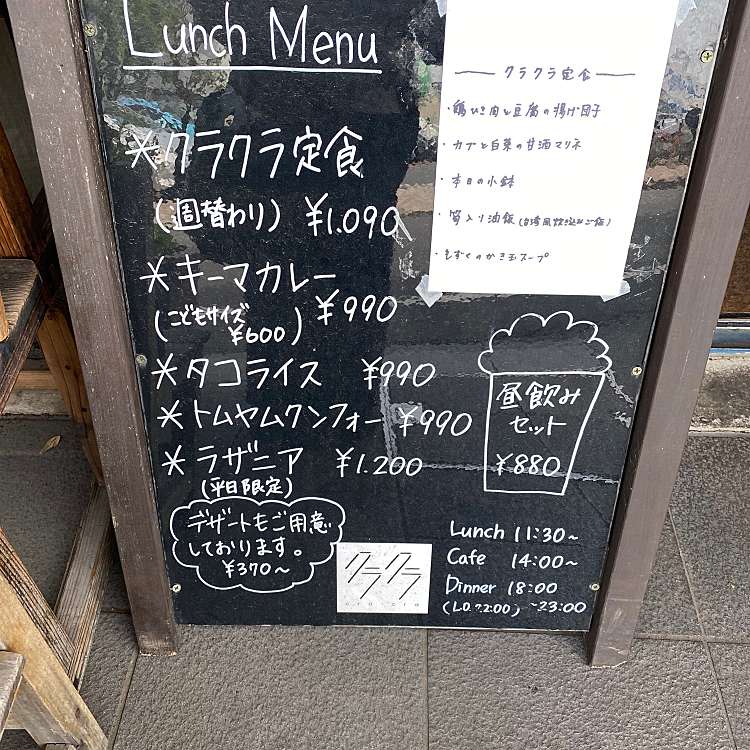 Lunch Menu
*クラクラ定食
(週替わり) ¥1.090
*キーマカレー
¥990
(こどもサイズ
¥600)
*タコライス ¥990
*トムヤムクンフォー ¥990
*ラザニア ¥1.200
(平日限定)
デザートもご用意
しております。
¥370〜
クラクラ
クラクラ定食
・鶏ひき肉と豆腐の揚げ団子
・カブと白菜の甘酒マリネ
・本日の小鉢
・筍入り油飯(台湾風炊込みご飯)
・もずくのかき玉スープ
昼飲み
セット
¥880
Lunch 11:30〜
Cafe 14:00〜
Dinner 18:00
(L.O.22:00) 〜23:00